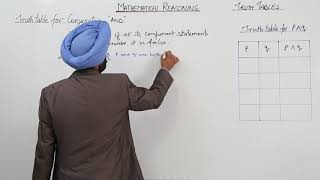 MATHEMATICAL REASONING
Truth Table for Connective "AND"
of all its component statements
it is false.
p and q are both
TRUTH TABLES
Truth table for P∧q
P q P∧q